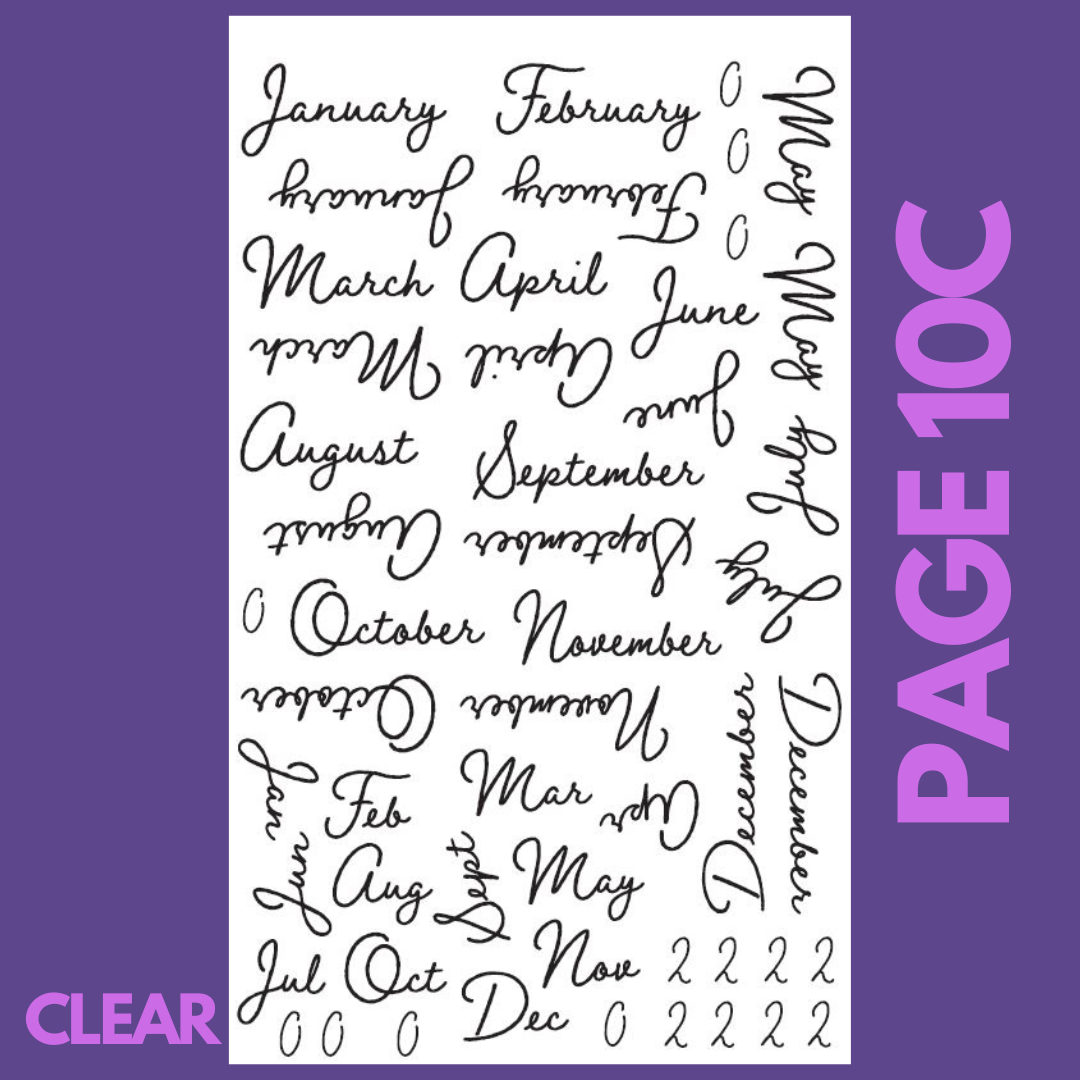 January February 0 May
0
January February
0
March April June May
March April
June
August September July
August September
July
0 October November
October November December December
Jan Feb Mar Apr
Jun Aug Sept May
Jul Oct Nov 2 2 2 2
0 0 0 Dec 0 2 2 2 2
PAGE 10C
CLEAR